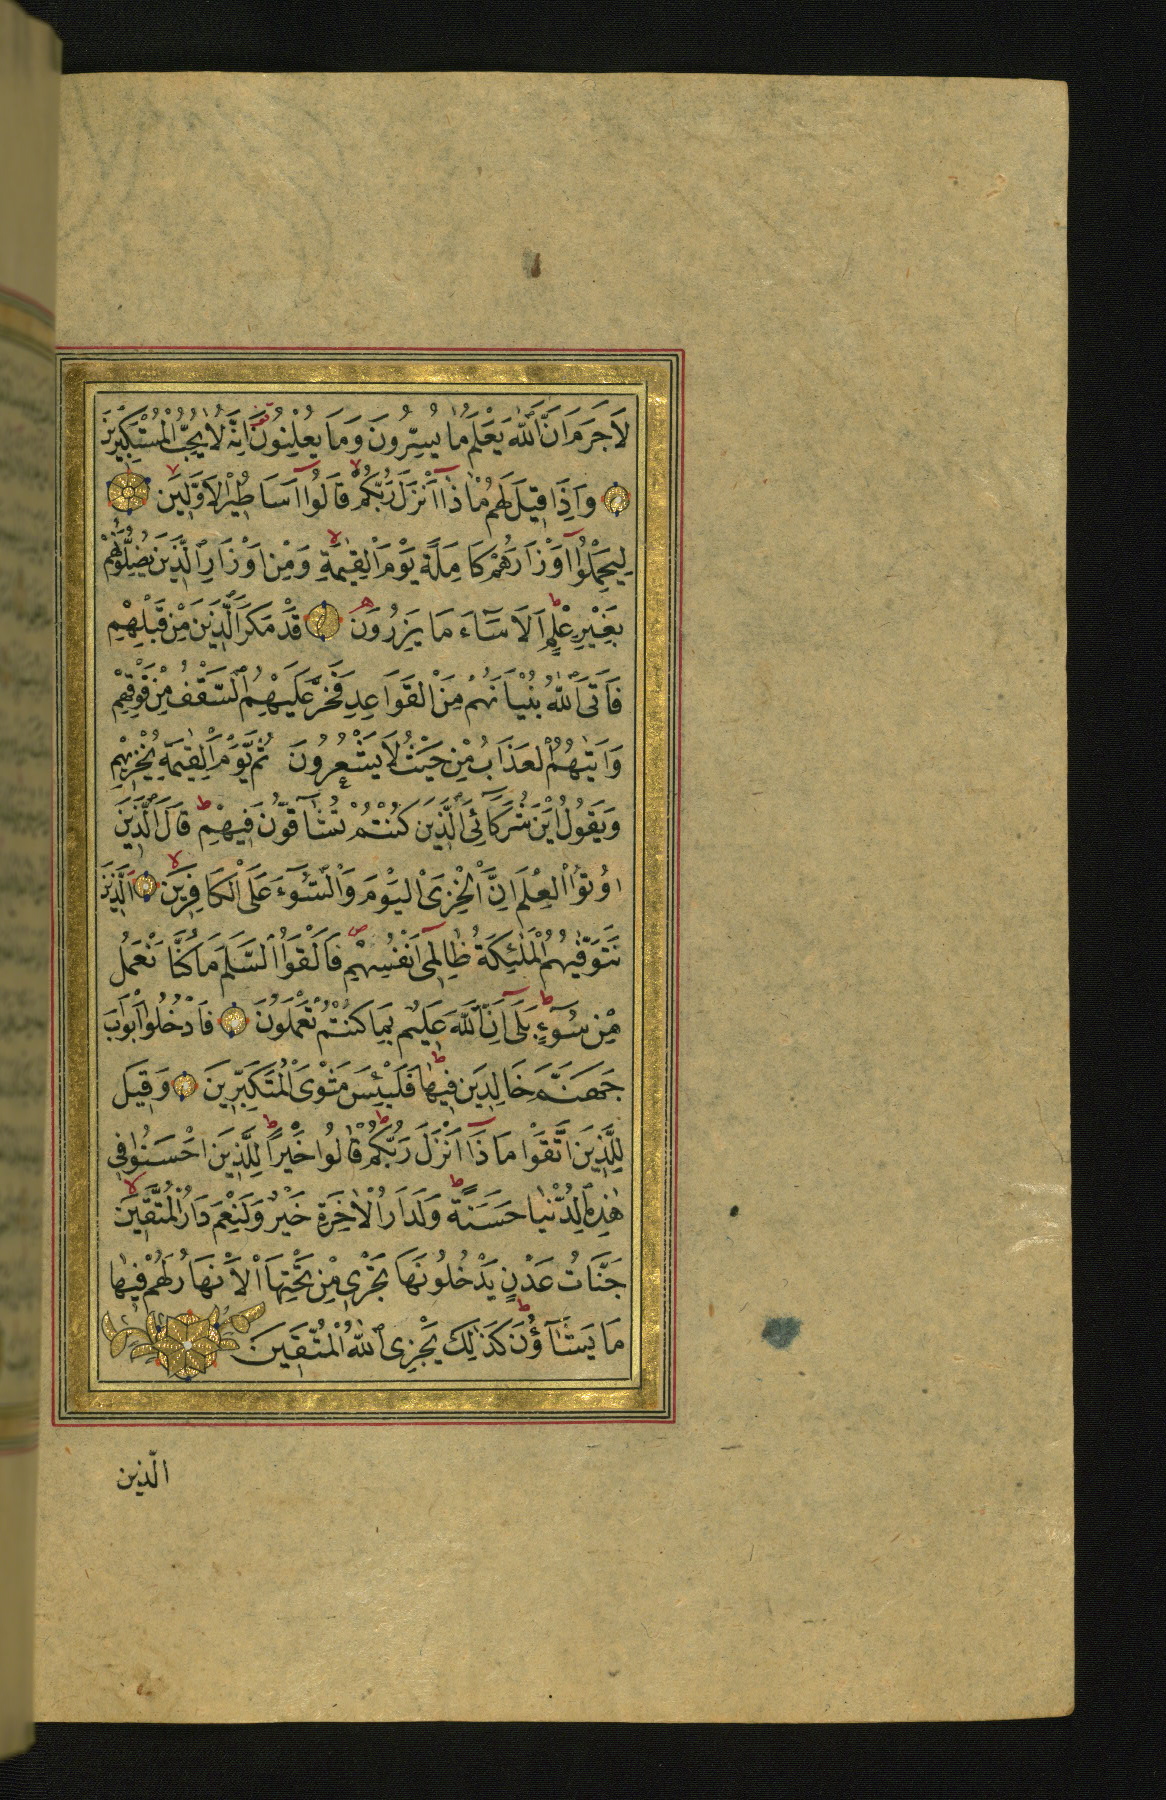 لَا جَرَمَ اَنَّ اللّٰهَ يَعْلَمُ مَا يُسِرُّونَ وَمَا يُعْلِنُونَ اِنَّهُ لَا يُحِبُّ الْمُسْتَكْبِرِينَ
وَاِذَا قِيلَ لَهُمْ مَاذَا اَنْزَلَ رَبُّكُمْ قَالُوا اَسَاطِيرُ الْاَوَّلِينَ
لِيَحْمِلُوا اَوْزَارَهُمْ كَامِلَةً يَوْمَ الْقِيٰمَةِ وَمِنْ اَوْزَارِ الَّذِينَ يُضِلُّونَهُمْ
بِغَيْرِ عِلْمٍ اَلَا سَآءَ مَا يَزِرُونَ قَدْ مَكَرَ الَّذِينَ مِنْ قَبْلِهِمْ
فَاَتَى اللّٰهُ بُنْيَانَهُمْ مِنَ الْقَوَاعِدِ فَخَرَّ عَلَيْهِمُ السَّقْفُ مِنْ فَوْقِهِمْ
وَاَتٰيهُمُ الْعَذَابُ مِنْ حَيْثُ لَا يَشْعُرُونَ ثُمَّ يَوْمَ الْقِيٰمَةِ يُخْزِيهِمْ
وَيَقُولُ اَيْنَ شُرَكَآئِىَ الَّذِينَ كُنْتُمْ تُشَآقُّونَ فِيهِمْ قَالَ الَّذِينَ
اُوتُوا الْعِلْمَ اِنَّ الْخِزْىَ الْيَوْمَ وَالسُّوٓءَ عَلَى الْكَافِرِينَ الَّذِينَ
تَتَوَفّٰيهُمُ الْمَلٰئِكَةُ ظَالِمِى اَنْفُسِهِمْ فَاَلْقَوُا السَّلَمَ مَا كُنَّا نَعْمَلُ
مِنْ سُوٓءٍ بَلٰى اِنَّ اللّٰهَ عَلِيمٌ بِمَا كُنْتُمْ تَعْمَلُونَ فَادْخُلُوا اَبْوَابَ
جَهَنَّمَ خَالِدِينَ فِيهَا فَلَبِئْسَ مَثْوَى الْمُتَكَبِّرِينَ وَقِيلَ
لِلَّذِينَ اتَّقَوْا مَاذَا اَنْزَلَ رَبُّكُمْ قَالُوا خَيْرًا لِلَّذِينَ اَحْسَنُوا فِى
هٰذِهِ الدُّنْيَا حَسَنَةٌ وَلَدَارُ الْاٰخِرَةِ خَيْرٌ وَلَنِعْمَ دَارُ الْمُتَّقِينَ
جَنَّاتُ عَدْنٍ يَدْخُلُونَهَا تَجْرِى مِنْ تَحْتِهَا الْاَنْهَارُ لَهُمْ فِيهَا
مَا يَشَآؤُنَ كَذٰلِكَ يَجْزِى اللّٰهُ الْمُتَّقِينَ
الّذين